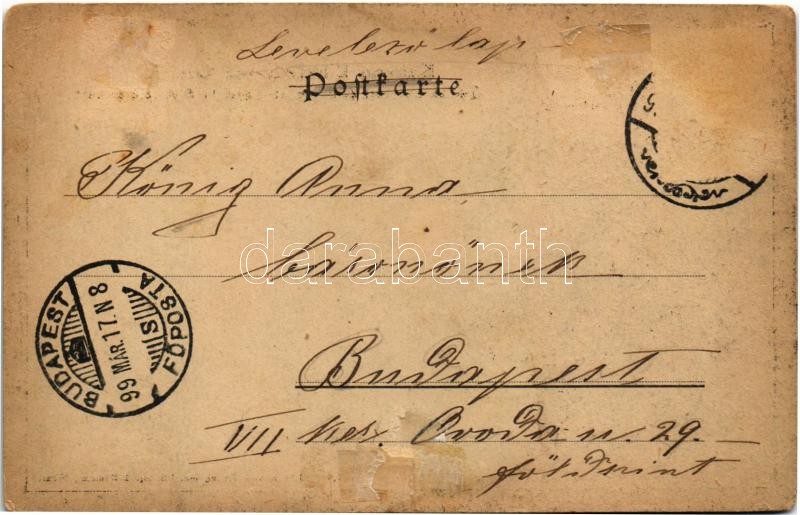 Levelező lap
Postkarte
König Anna
bárónőnek
darabanth
BUDAPEST
FŐPOSTA
99 MÁR. 17. N 8
S
Budapest
VII ker. Óvoda u. 29.
földszint